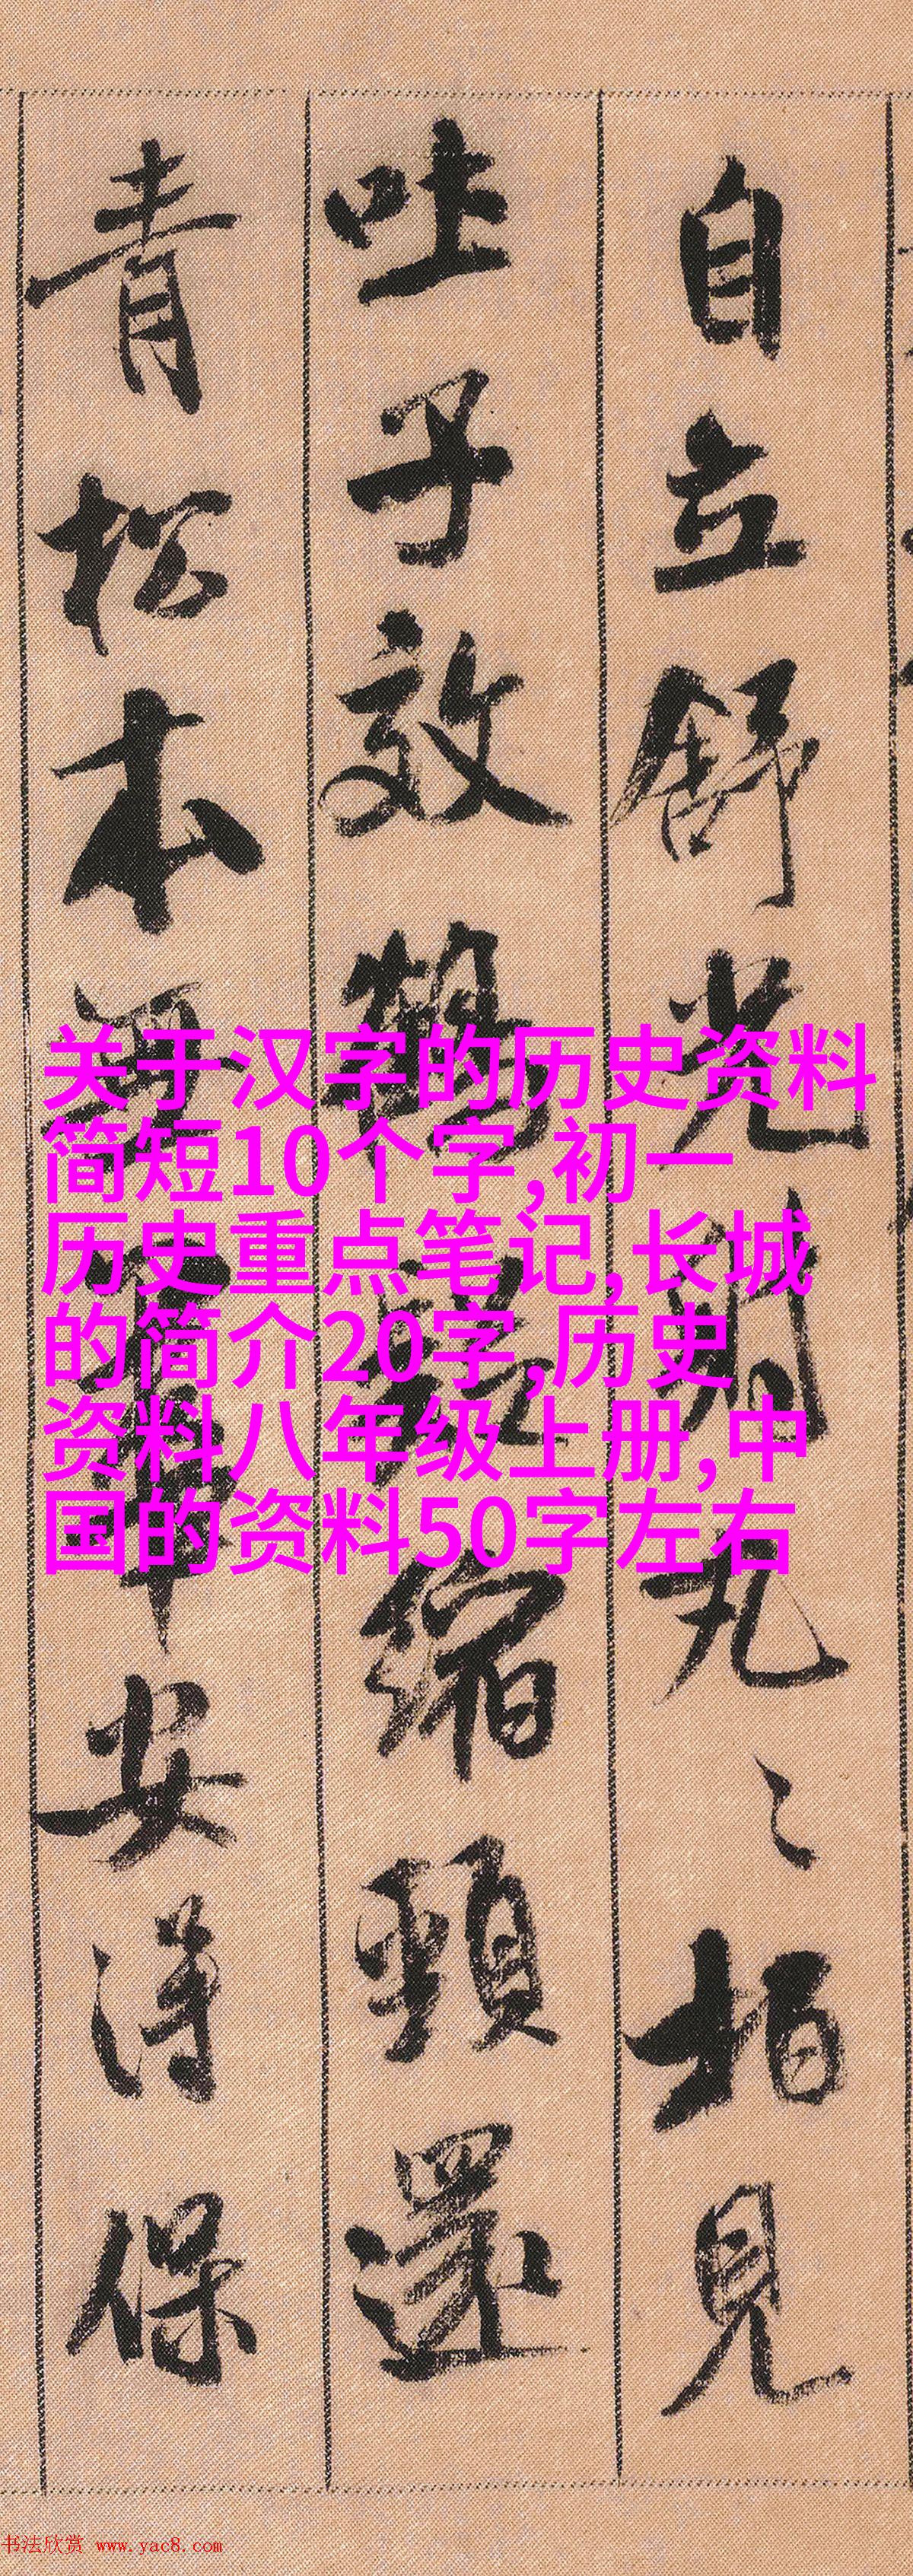 自立舒光射丸〻柏見
吐子效鶴疑縮頸還
青松本無華安得保
关于汉字的历史资料
简短10个字,初一
历史重点笔记,长城
的简介20字,历史
资料八年级上册,中
国的资料50字左右
书法欣赏 www.yac8.com